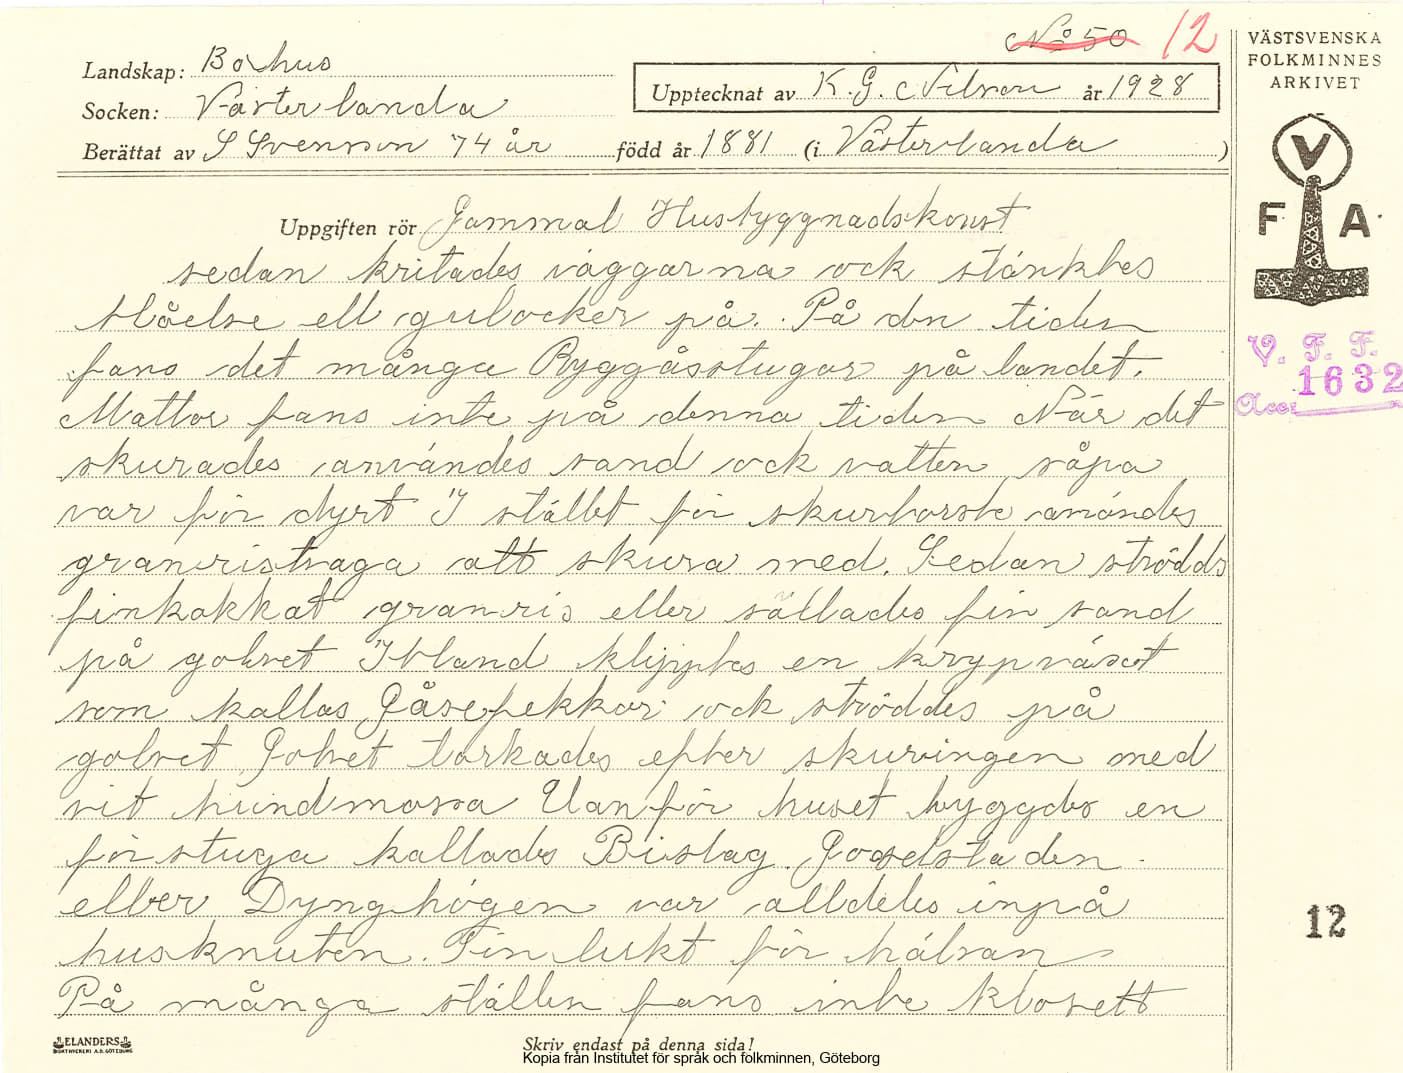 N:o 50 12
Landskap: Bohus
Socken: Västerlanda
Berättat av S Svenson 74 år född år 1881 (i Västerlanda)
Upptecknat av K. G. Nilson år 1928
VÄSTSVENSKA
FOLKMINNES
ARKIVET
V
F A
V. F. F.
Acc: 1632
12
Uppgiften rör Gammal Husbyggnadskonst
sedan kritades väggarna ock stänktes
blåelse ell gulocker på. På den tiden
fans det många Ryggåsstugor på landet.
Mattor fans inte på denna tiden När det
skurades användes sand ock vatten såpa
var för dyrt I stället för skurborste användes
granristvaga att skura med. Sedan strödds
finhakkat granris eller sållades fin sand
på golvet Ibland klipptes en krypväxt
som kallas Gåsefekkor ock ströddes på
golvet Golvet torkades efter skuringen med
vit hundmossa Utanför huset byggdes en
förstuga kallades Bislag. Godselstaden
eller Dynghögen var alldeles inpå
husknuten. Fin lukt för hälsan
På många ställen fans inte klosett
ELANDERS
BOKTRYCKERI A.B. GÖTEBORG
Skriv endast på denna sida!
Kopia från Institutet för språk och folkminnen, Göteborg